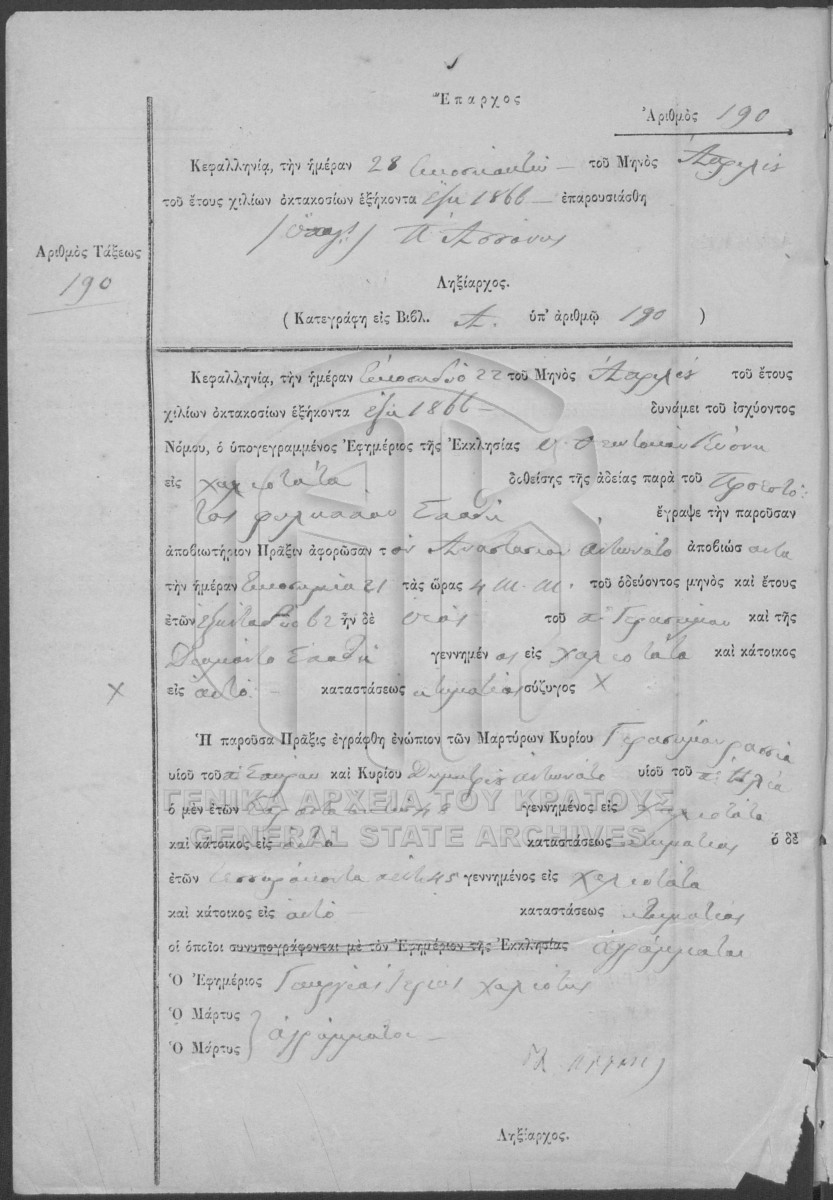 Ἔπαρχος
Ἀριθμὸς 190
Κεφαλληνίᾳ, τὴν ἡμέραν 28 τοῦ Μηνὸς Ἀπριλίου
τοῦ ἔτους χιλίων ὀκτακοσίων ἑξήκοντα ἕξη 1866 — ἐπαρουσιάσθη
Ἀριθμὸς Τάξεως
190
Ληξίαρχος.
( Κατεγράφη εἰς Βιβλ. Α. ὑπ' ἀριθμῷ 190 )
Κεφαλληνίᾳ, τὴν ἡμέραν εἰκοσιδύο 22 τοῦ Μηνὸς Ἀπριλίου τοῦ ἔτους
χιλίων ὀκτακοσίων ἑξήκοντα ἕξη 1866 — δυνάμει τοῦ ἰσχύοντος
Νόμου, ὁ ὑπογεγραμμένος Ἐφημέριος τῆς Ἐκκλησίας
εἰς χαλιοτάτα δοθείσης τῆς ἀδείας παρὰ τοῦ
ἔγραψε τὴν παροῦσαν
ἀποβιωτήριον Πρᾶξιν ἀφορῶσαν τὸν Ἀναστάσιον Ἀντωνάτο ἀποβιώσαντα
τὴν ἡμέραν εἰκοσιμία 21 τὰς ὥρας 4 μ.μ. τοῦ ὁδεύοντος μηνὸς καὶ ἔτους
ἐτῶν ἑξηνταδύο 62 ἦν δὲ υἱὸς τοῦ π: Γερασίμου καὶ τῆς
γεννημένος εἰς χαλιοτάτα καὶ κάτοικος
εἰς αὐτό — καταστάσεως κτηματίας σύζυγος ×
×
Ἡ παροῦσα Πρᾶξις ἐγράφθη ἐνώπιον τῶν Μαρτύρων Κυρίου Γερασίμου
υἱοῦ τοῦ π: Σπύρου καὶ Κυρίου Δημητρίου Ἀντωνάτο υἱοῦ τοῦ π: Ἠλία
ΓΕΝΙΚΑ ΑΡΧΕΙΑ ΤΟΥ ΚΡΑΤΟΥΣ
ὁ μὲν ἐτῶν 48 γεννημένος εἰς χαλιοτάτα
GENERAL STATE ARCHIVES
καὶ κάτοικος εἰς αὐτό καταστάσεως κτηματίας ὁ δὲ
ἐτῶν τεσσαράκοντα πέντε 45 γεννημένος εἰς χαλιοτάτα
καὶ κάτοικος εἰς αὐτό — καταστάσεως κτηματίας
οἱ ὁποῖοι συνυπογράφονται μὲ τὸν Ἐφημέριον τῆς Ἐκκλησίας ἀγράμματοι
Ὁ Ἐφημέριος χαλιότης
Ὁ Μάρτυς
Ὁ Μάρτυς } ἀγράμματοι —
Ληξίαρχος.